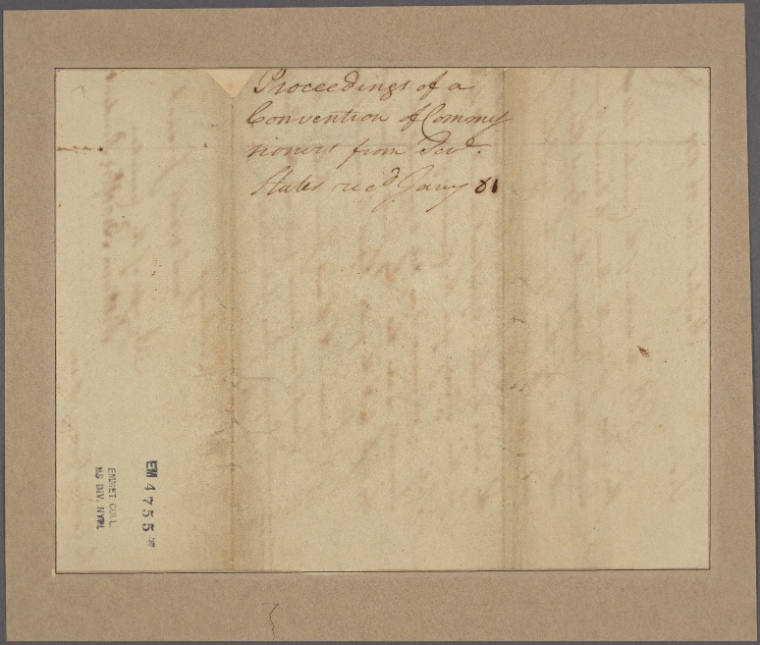 Proceedings of a
Convention of Commis
sioners from Sevl.
States recd. Jany 81
EM 4755
EMMET COLL
MS DIV. NYPL